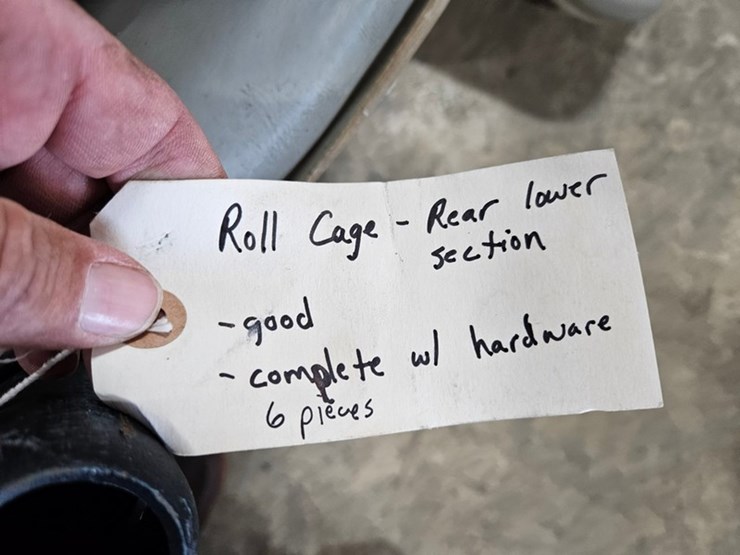 Roll Cage - Rear lower
section
- good
- complete w/ hardware
6 pieces